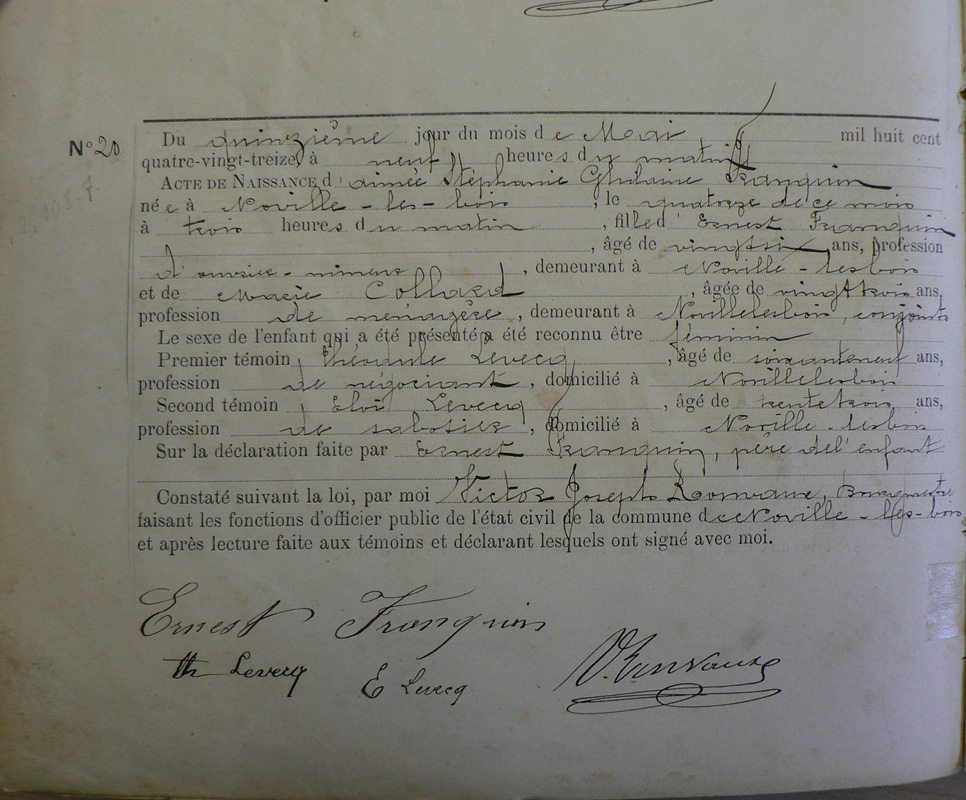 N° 20
Du quinzième jour du mois de Mai, mil huit cent
quatre-vingt-treize, à neuf heures du matin
ACTE DE NAISSANCE d'aimée Stéphanie Ghislaine Franquin
née à Noville-les-bois, le quatorze de ce mois
à trois heures du matin, fille d'Ernest Franquin
, âgé de vingtsix ans, profession
d'ouvrier-mineur, demeurant à Noville-lesbois
et de Marie Collard, âgée de vingttrois ans,
profession de ménagère, demeurant à Novillelesbois, conjoints
Le sexe de l'enfant qui a été présenté a été reconnu être féminin
Premier témoin Levecq, âgé de soixanteneuf ans,
profession de négociant, domicilié à Novillelesbois
Second témoin Eloi Levecq, âgé de trentetrois ans,
profession de sabotier, domicilié à Noville-lesbois
Sur la déclaration faite par Ernest Franquin, père de l'enfant
Constaté suivant la loi, par moi Victor Joseph Bourgmestre
faisant les fonctions d'officier public de l'état civil de la commune de Noville-les-bois
et après lecture faite aux témoins et déclarant lesquels ont signé avec moi.
Ernest Franquin
th Levecq E Levecq V.